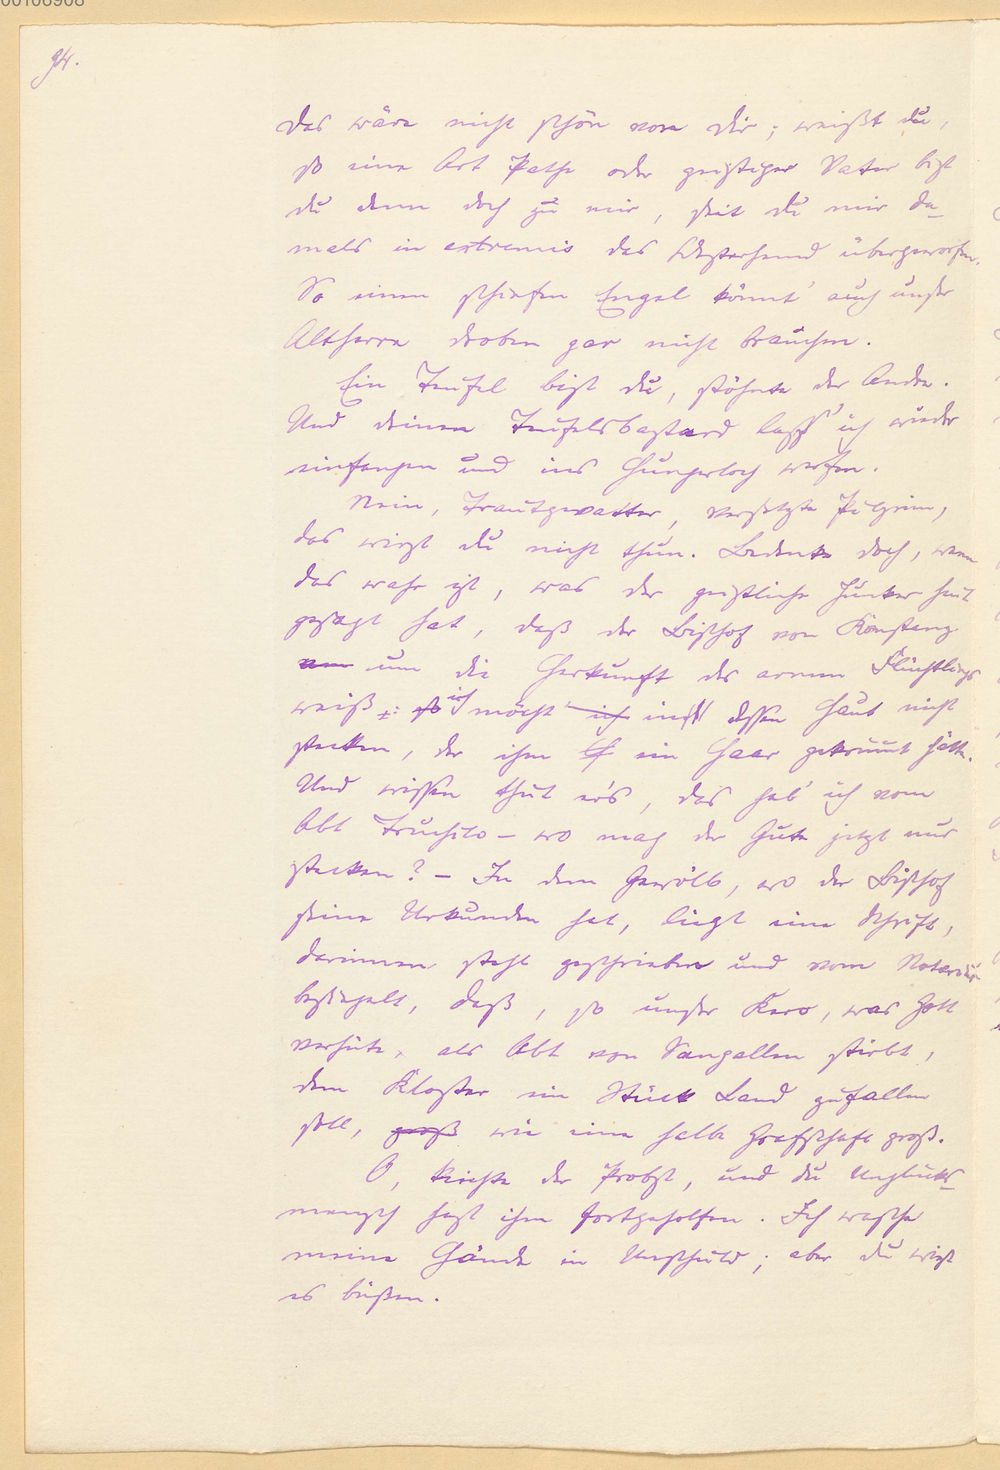 00106908
94.
das wäre nicht schön von dir; weißt du,
so eine Art Pathe oder geistiger Vater bist
du denn doch zu mir, seit du mir da-
mals in extremis das Westerhemd übergeworfen.
So einen schiefen Engel könnt' auch unser
Altherre droben gar nicht brauchen.
Ein Teufel bist du, stöhnte der Andre.
Und deinen Teufelsbastard lass' ich wieder
einfangen und ins Hungerloch werfen.
Nein, Trautgevatter, versetzte Pilgrim,
das wirst du nicht thun. Bedenke doch, wenn
das wahr ist, was der geistliche Junker heut
gesagt hat, daß der Bischof von Konstanz
um die Herkunft des armen Flüchtlings
weiß: ich möcht' in dessen Haut nicht
stecken, der ihm ein Haar gekrümmt hätte.
Und wissen thut er's, das hab' ich vom
Abt Truchilo – wo mag der Gute jetzt nur
stecken? – In dem Gewölb, wo der Bischof
seine Urkunden hat, liegt eine Schrift,
darinnen steht geschrieben und vom Notarius
besiegelt, daß, so unser Kero, was Gott
verhüte, als Abt von Sangallen stirbt,
dem Kloster ein Stück Land zufallen
soll, groß wie eine halbe Grafschaft groß.
O, kreischte der Probst, und du Unglücks-
mensch hast ihm fortgeholfen. Ich wasche
meine Hände in Unschuld; aber du wirst
es büßen.